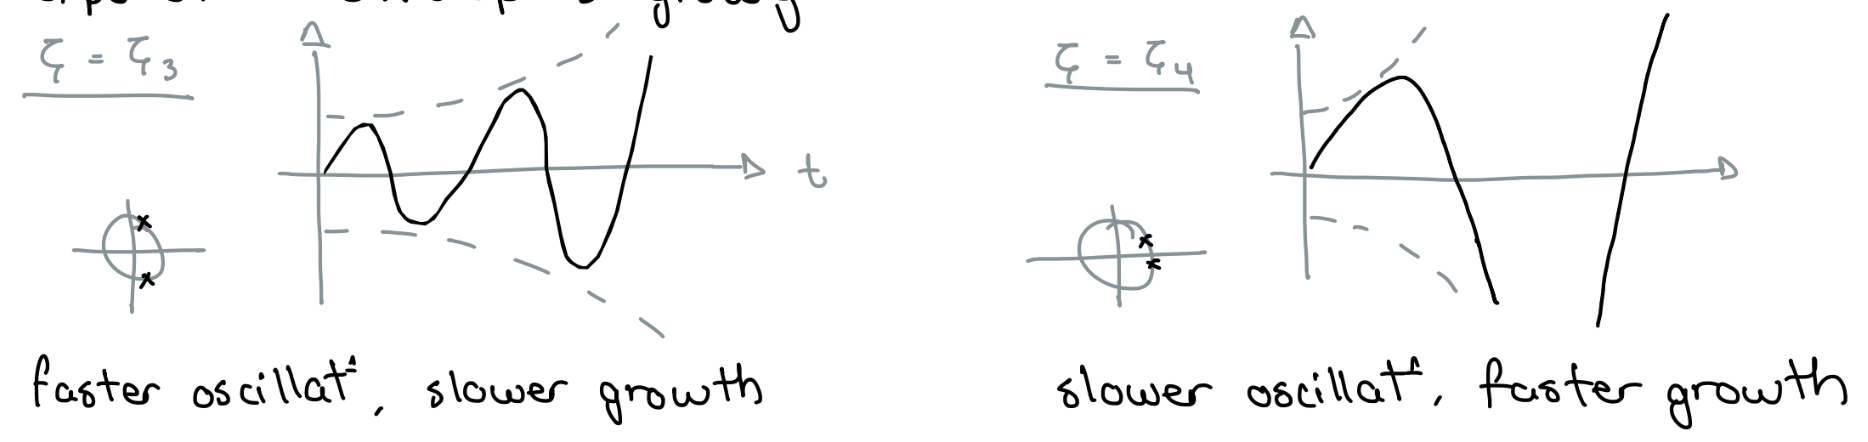 growing
ζ = ζ₃
ζ = ζ₄
t
faster oscillatⁿ, slower growth
slower oscillatⁿ, faster growth